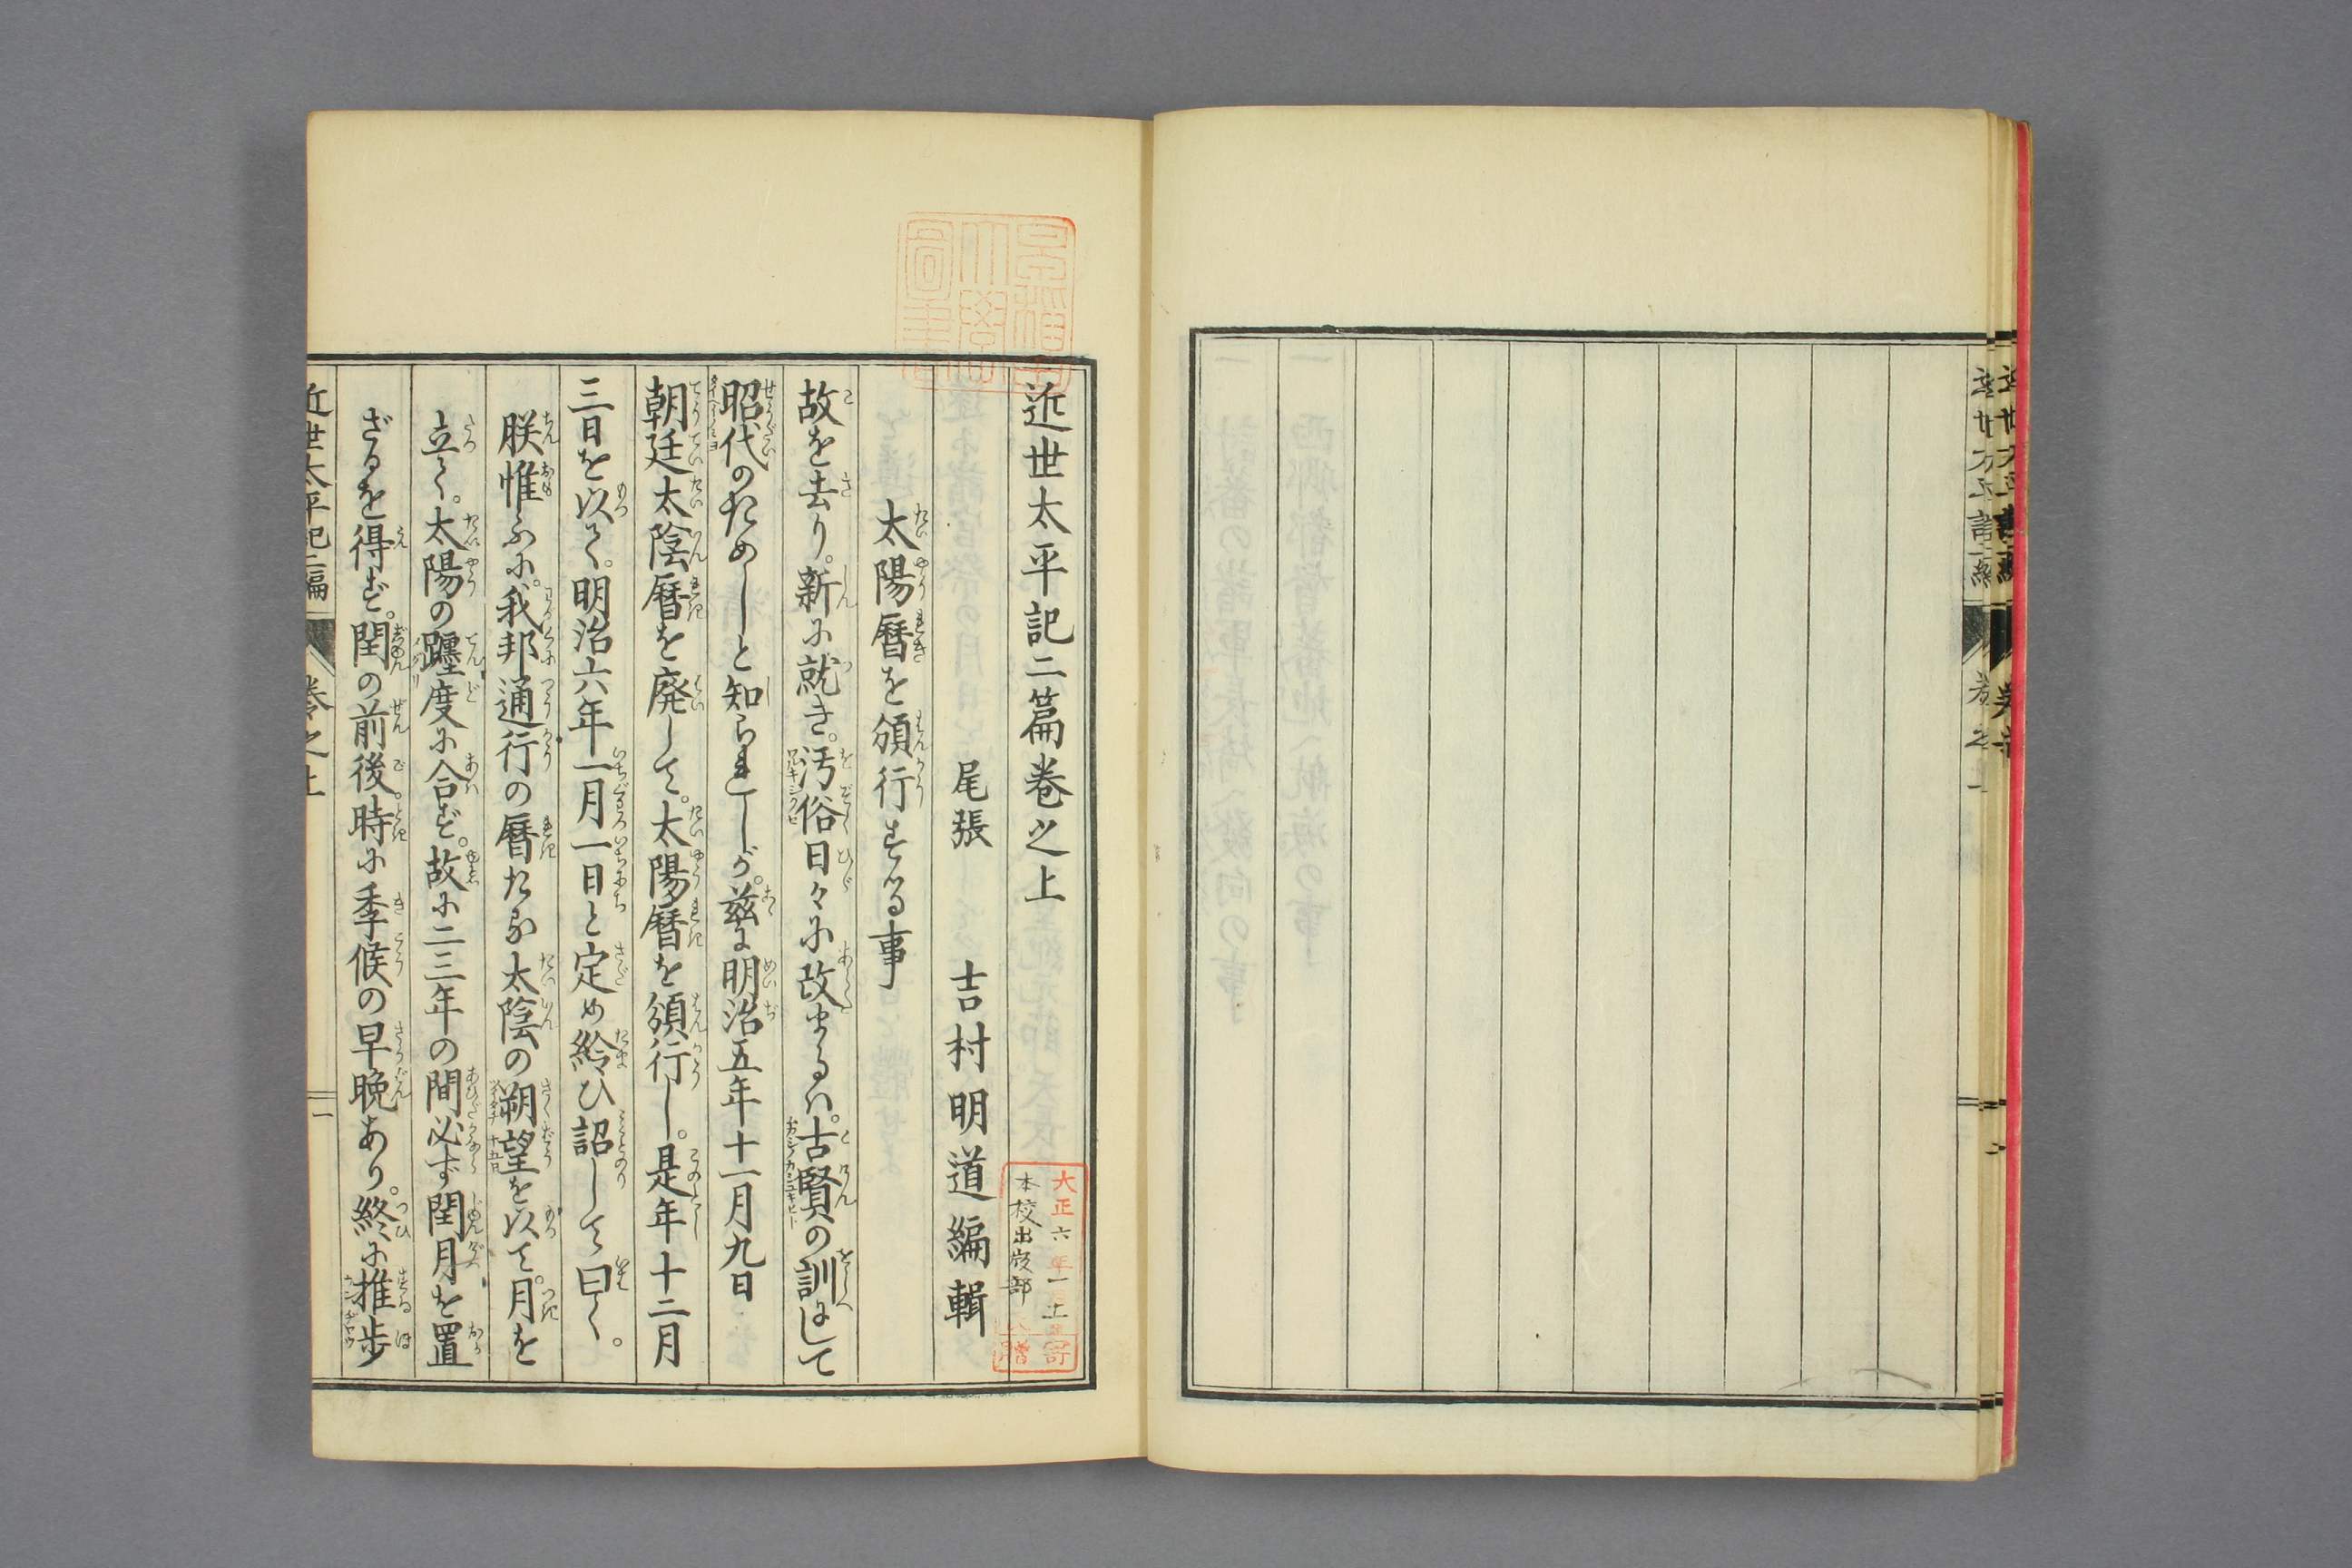 近世太平記二篇巻之上
尾張　吉村明道編輯
太陽暦を頒行する事
故を去り。新に就き。汚俗日々に改まるハ。古賢の訓にして
昭代のためしと知られしが。茲に明治五年十一月九日
朝廷太陰暦を廃して。太陽暦を頒行し。是年十二月
三日を以て。明治六年一月一日と定め給ひ詔して曰く。
朕惟ふに。我邦通行の暦たる太陰の朔望を以て。月を
立て。太陽の躔度に合ず。故に二三年の間必ず閏月を置
ざるを得ず。閏の前後。時に季候の早晩あり。終に推歩
近世太平記二編　巻之上　一
大正六年一
本校出版部
寄贈